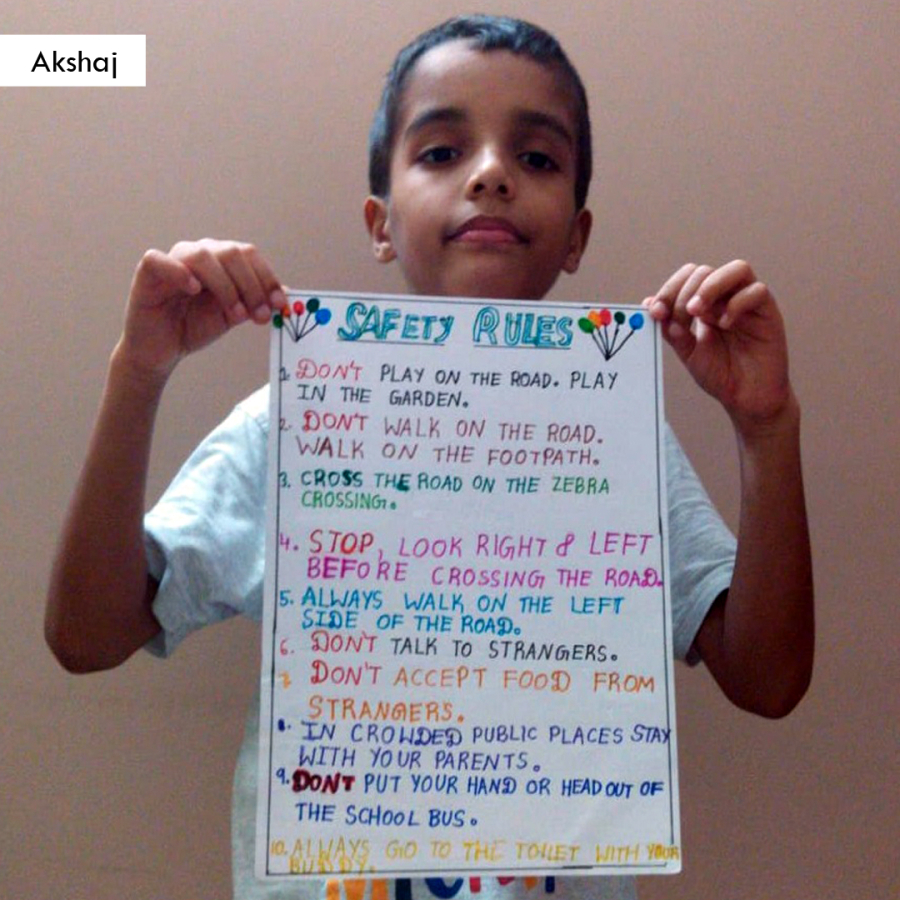 Akshaj
SAFETY RULES
1. DON'T PLAY ON THE ROAD. PLAY
IN THE GARDEN.
2. DON'T WALK ON THE ROAD.
WALK ON THE FOOTPATH.
3. CROSS THE ROAD ON THE ZEBRA
CROSSING.
4. STOP, LOOK RIGHT & LEFT
BEFORE CROSSING THE ROAD.
5. ALWAYS WALK ON THE LEFT
SIDE OF THE ROAD.
6. DON'T TALK TO STRANGERS.
7. DON'T ACCEPT FOOD FROM
STRANGERS.
8. IN CROWDED PUBLIC PLACES STAY
WITH YOUR PARENTS.
9. DON'T PUT YOUR HAND OR HEAD OUT OF
THE SCHOOL BUS.
10. ALWAYS GO TO THE TOILET WITH YOUR
BUDDY.